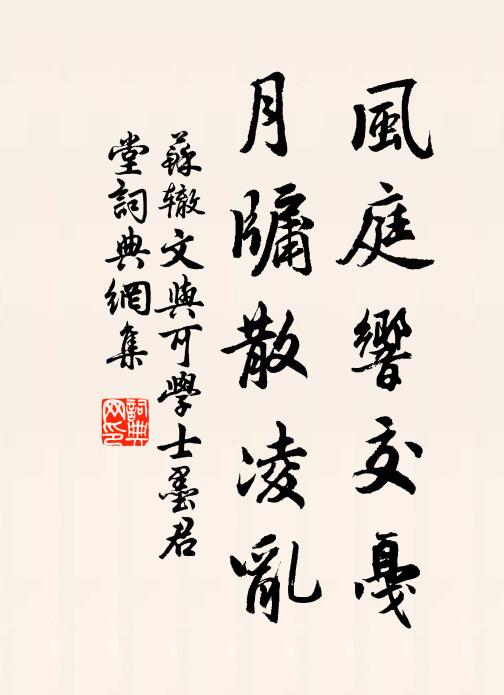 風庭響交戛
月牖散凌亂
蘇辙文與可學士墨君
堂詞典網集
詞典
网印